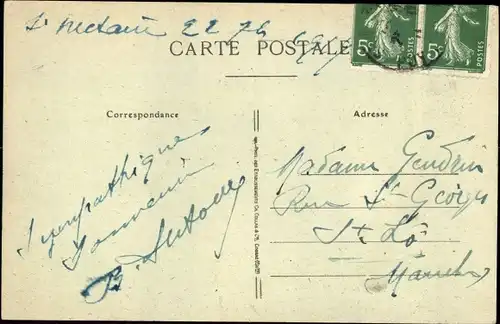 St Nectaire 22
CARTE POSTALE
5c 5c
POSTES POSTES
Correspondance
Adresse
Sympathique
Souvenir
B. Antoine
Madame Gendrin
Rue St Georges
St Lô
Manche